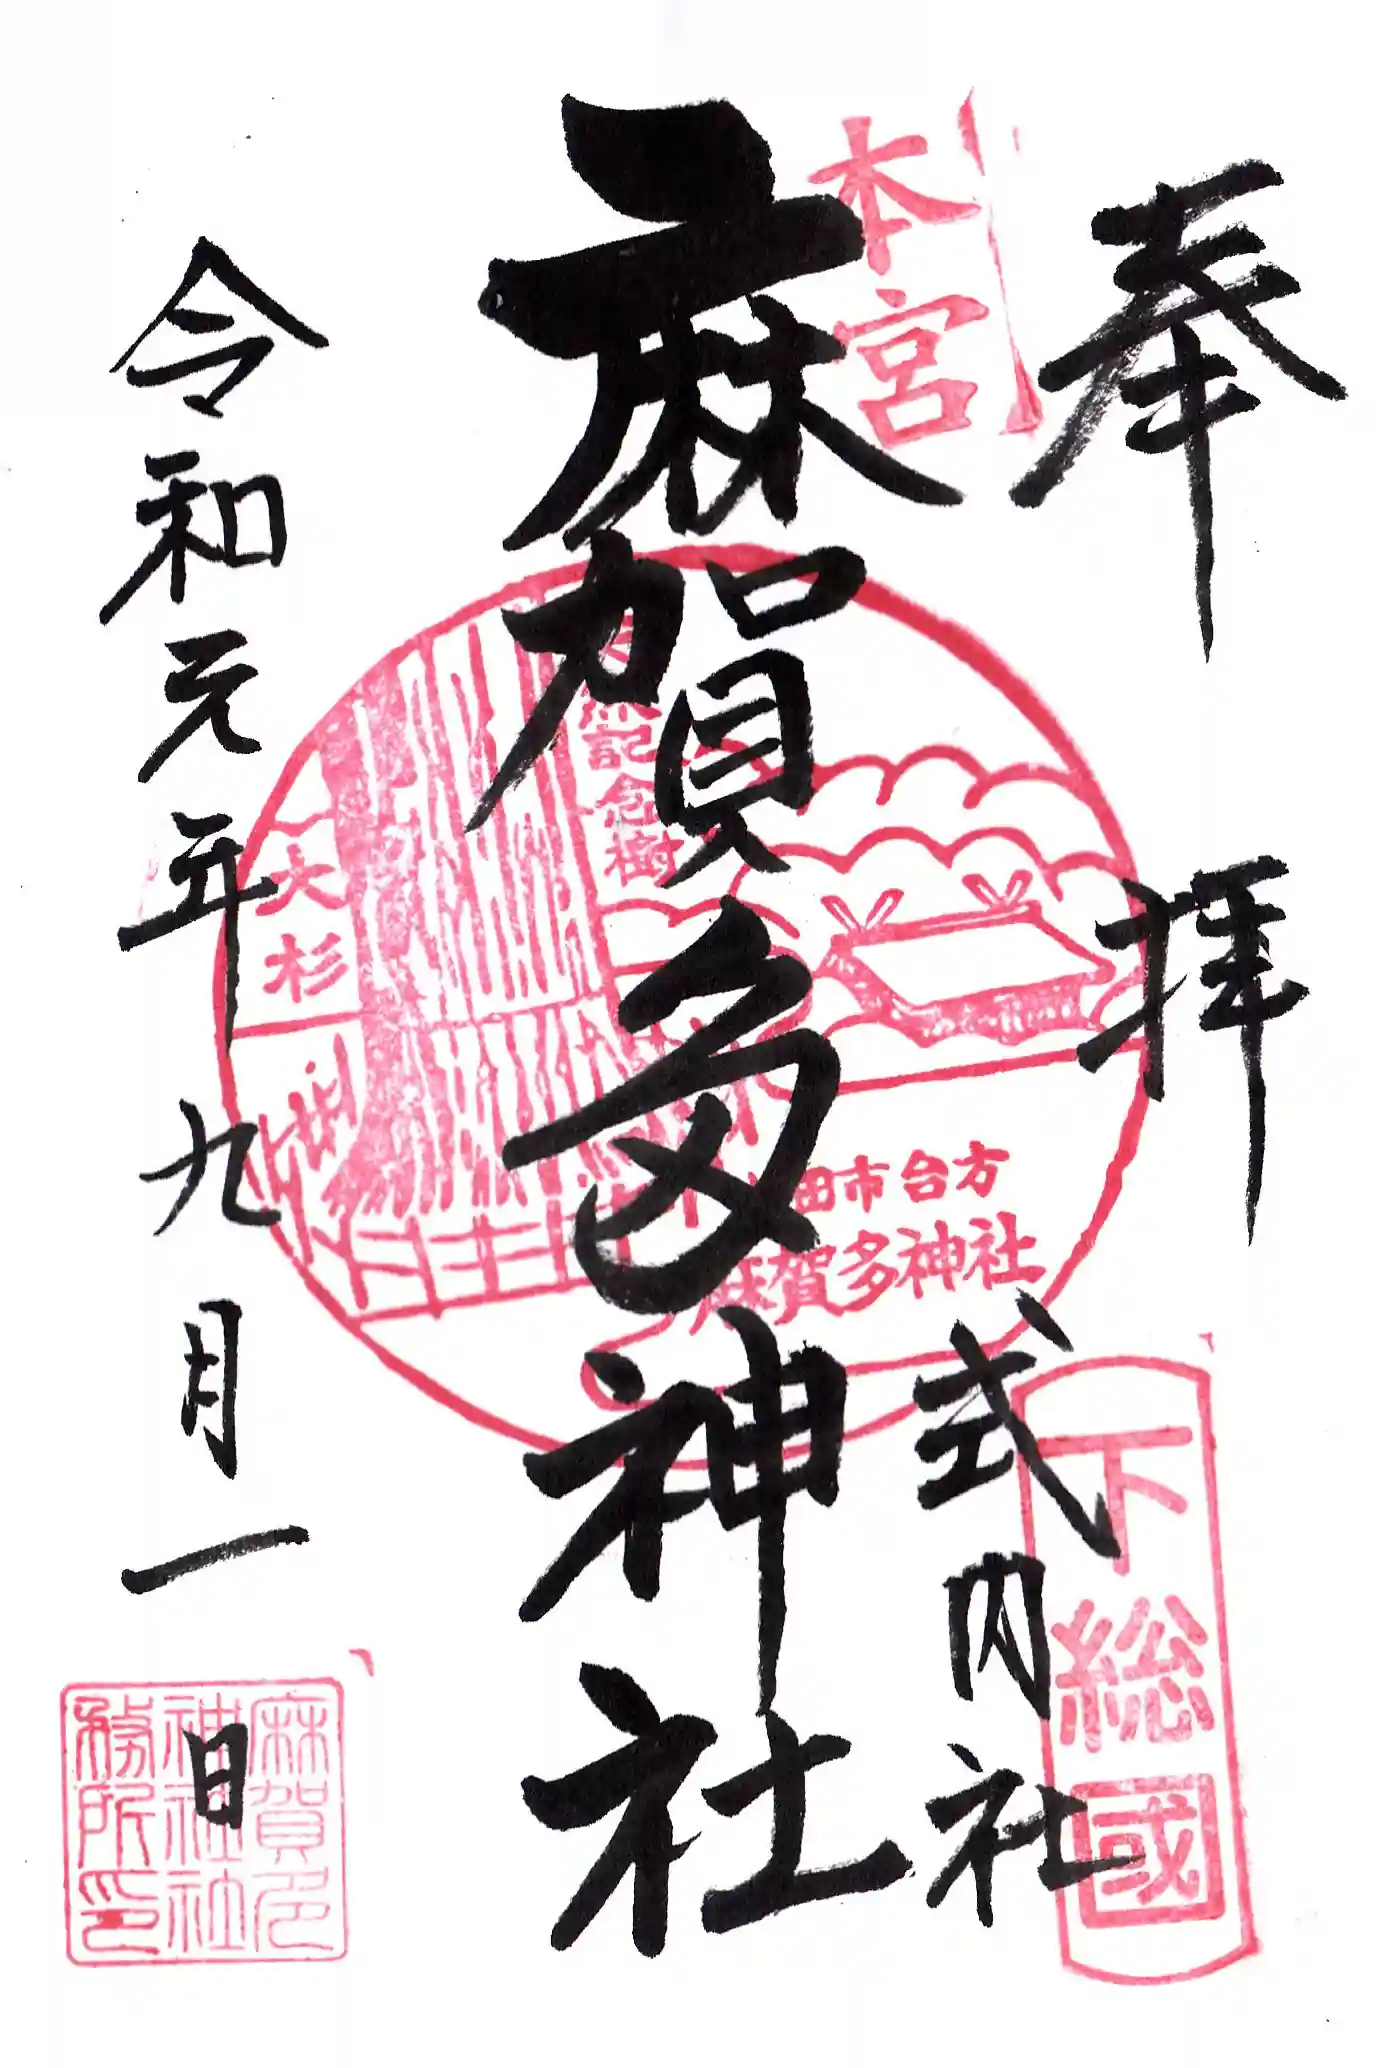 奉拝
式内社
下総國
本宮
麻賀多神社
記念樹
大杉
田市台方
麻賀多神社
令和元年九月一日
麻賀多
神社
務所印